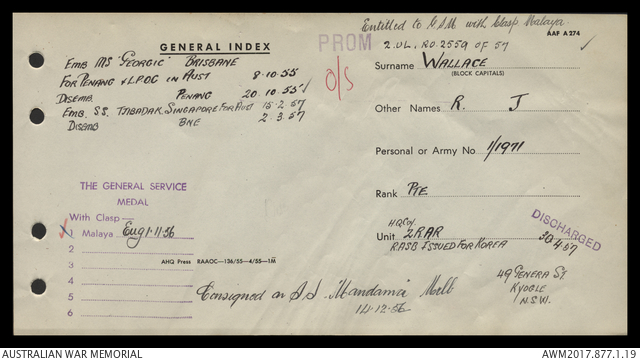 Entitled to GSM with Clasp Malaya.
AAF A274
GENERAL INDEX
PROM
2.VL. RO.2559 OF 57
Emb MS "GEORGIC" BRISBANE
FOR PENANG & LPOG IN AUST 8·10·55
DISEMB. PENANG 20·10·55
EMB. SS. TJIBADAK, SINGAPORE FOR AUST 15·2·57
DISEMB BNE 2·3·57
O/S
Surname WALLACE
(BLOCK CAPITALS)
Other Names R. J
Personal or Army No 1/1971
Rank PTE
HQ Coy.
Unit 2RAR
RASB ISSUED FOR KOREA
DISCHARGED
30·4·57
THE GENERAL SERVICE
MEDAL
With Clasp—
1 Malaya Eng 1·11·56
2
3
4
5
6
AHQ Press RAAOC—136/55—4/55—1M
Consigned on S.S. Mandama Melb
14·12·56
49 GENEVA ST.
KYOGLE
N.S.W.
AUSTRALIAN WAR MEMORIAL
AWM2017.877.1.19